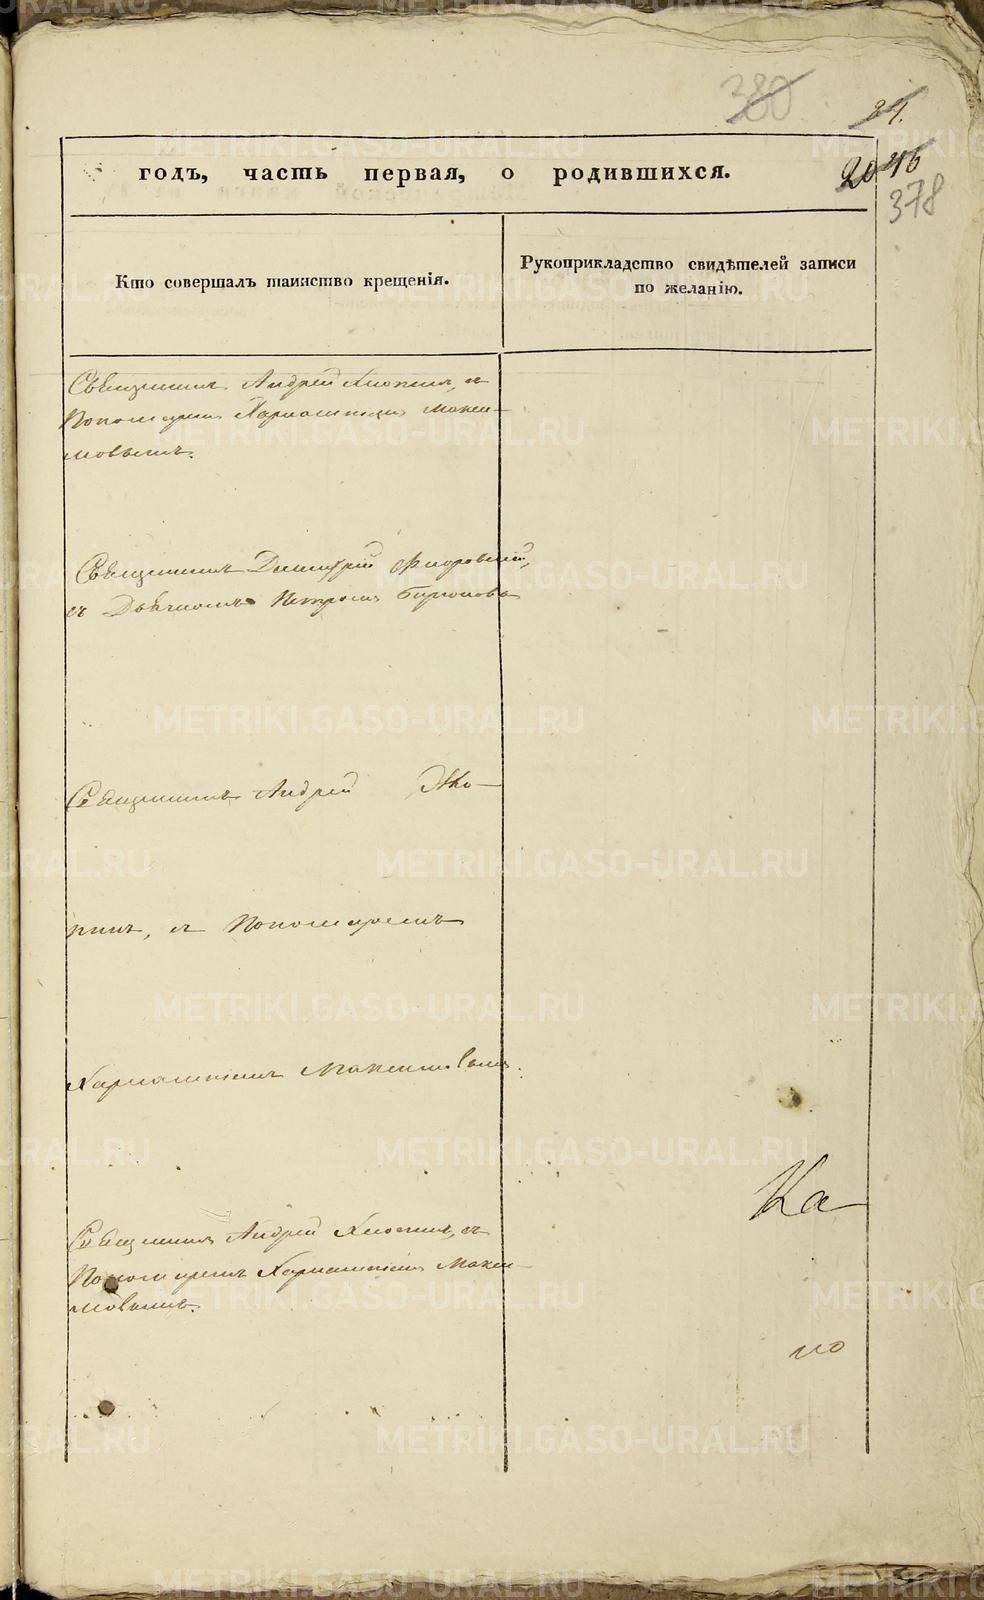 380
24.
годъ, часть первая, о родившихся.
20 46
378
Кто совершалъ таинство крещенія.
Рукоприкладство свидѣтелей записи
по желанію.
Священникъ Андрей съ
Пономаремъ Харлампіемъ Макси-
мовымъ.
Священникъ Димитрій Флоровскій,
съ Дьячкомъ Петромъ Бирюковымъ
Священникъ Андрей
съ Пономаремъ
Харлампіемъ Максимовымъ.
Ка
Священникъ Андрей съ
Пономаремъ Харлампіемъ Макси-
мовымъ.
по
METRIKI.GASO-URAL.RU